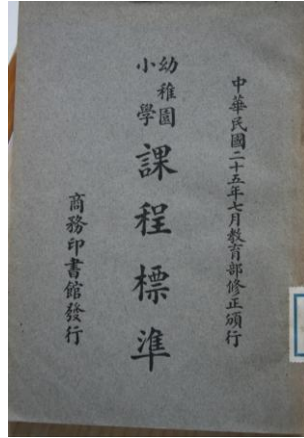 中華民國二十五年七月教育部修正頒行
幼稚園
小學
課程標準
商務印書館發行